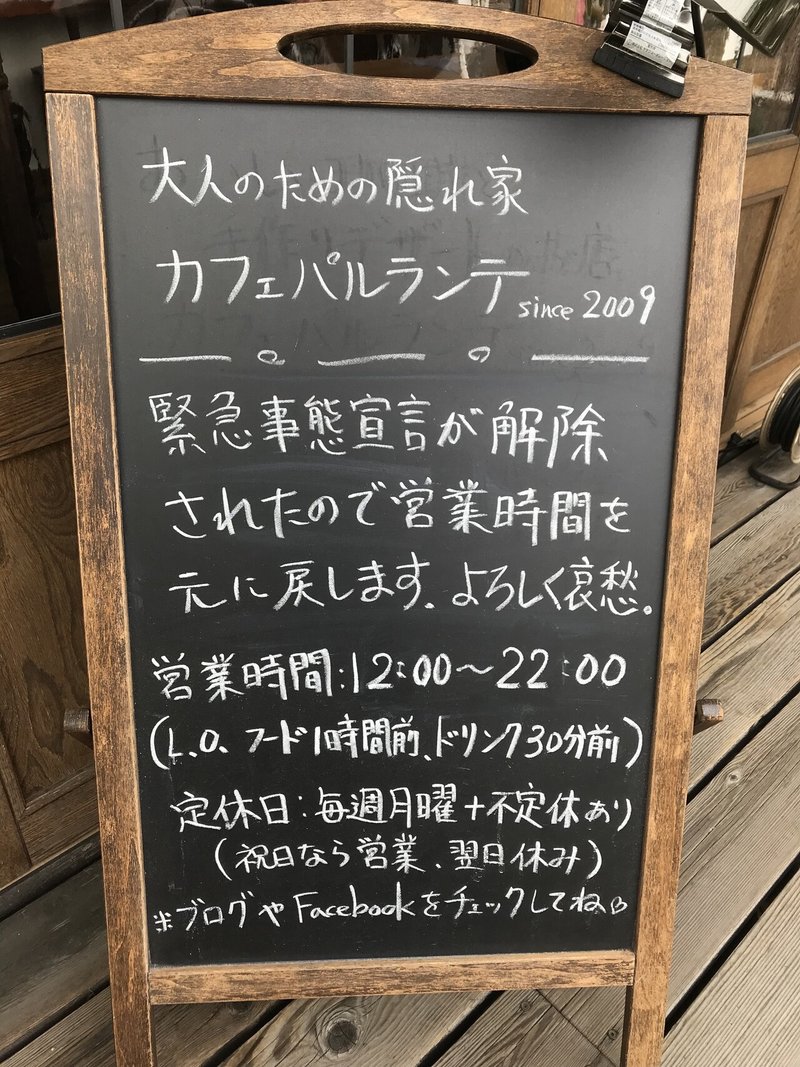 大人のための隠れ家
カフェパルランテ since 2009
緊急事態宣言が解除
されたので営業時間を
元に戻します.よろしく哀愁。
営業時間:12:00〜22:00
(L.O. フード1時間前、ドリンク30分前)
定休日:毎週月曜+不定休あり
(祝日なら営業、翌日休み)
※ブログやFacebookをチェックしてね♡